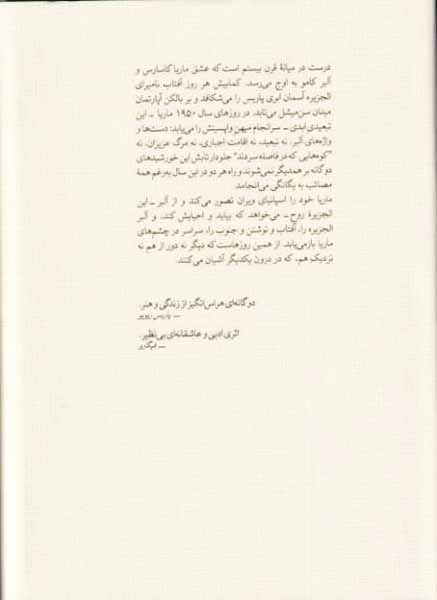 درست در میانهٔ قرن بیستم است که عشق ماریا کاسارس و
آلبر کامو به اوج می‌رسد. کمابیش هر روز آفتاب نامیرای
الجزیره آسمان ابری پاریس را می‌شکافد و بر بالکن آپارتمان
میدان سن‌میشل می‌تابد. در روزهای سال ۱۹۵۰ ماریا ـ این
تبعیدی ابدی ـ سرانجام میهن واپسینش را می‌یابد: دست‌ها و
واژه‌های آلبر. نه تبعید، نه اقامت اجباری، نه مرگ عزیزان، نه
"کوه‌هایی که در فاصله سردند" جلودار تابش این خورشیدهای
دوگانه بر همدیگر نمی‌شوند و راه هر دو در این سال به‌رغم همهٔ
مصائب به یگانگی می‌انجامد.
ماریا خود را اسپانیای ویران تصور می‌کند و از آلبر ـ این
الجزیرهٔ روح ـ می‌خواهد که بیاید و احیایش کند، و آلبر
الجزیره را، آفتاب و نوشتن و جنوب را، سراسر در چشم‌های
ماریا بازمی‌یابد. از همین روزهاست که دیگر نه دور از هم نه
نزدیک هم، که در درون یکدیگر آشیان می‌کنند.
دوگانه‌ای هراس‌انگیز از زندگی و هنر.
ـ پاریس ریویو
اثری ادبی و عاشقانه‌ای بی‌نظیر.
ـ فیگارو